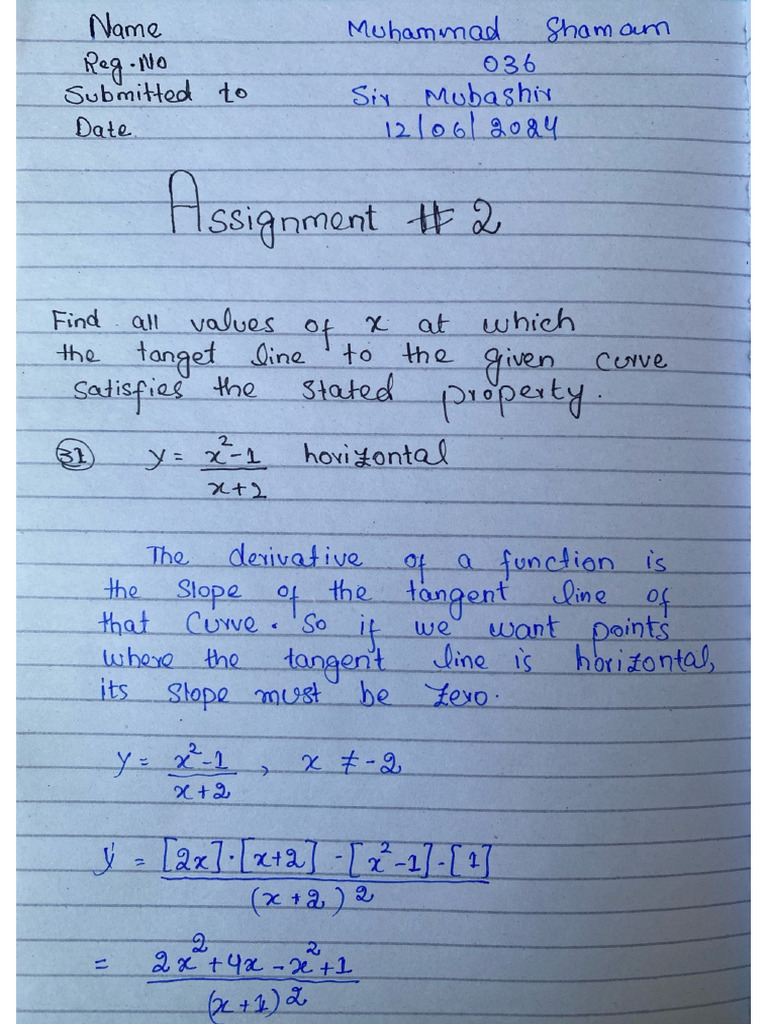 Name Muhammad Shamam
Reg.No 036
Submitted to Sir Mubashir
Date 12/06/2024
Assignment # 2
Find all values of x at which
the tanget line to the given curve
satisfies the stated property.
31 y = x²-1 / x+2 horizontal
The derivative of a function is
the slope of the tangent line of
that curve. So if we want points
where the tangent line is horizontal,
its slope must be zero.
y = x²-1 / x+2 , x ≠ -2
y' = [2x]·[x+2] - [x²-1]·[1] / (x+2)²
= 2x²+4x-x²+1 / (x+1)²